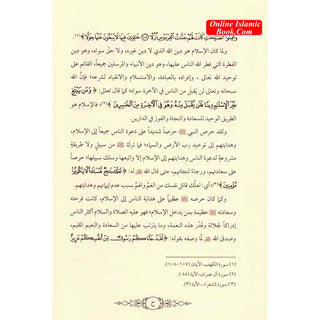 Online Islamic
Book.Com
وَعَمِلُوا الصَّالِحَاتِ كَانَتْ لَهُمْ جَنَّاتُ الْفِرْدَوْسِ نُزُلًا ۝ خَالِدِينَ فِيهَا لَا يَبْغُونَ عَنْهَا حِوَلًا﴾(١).
ولما كان الإسلام هو دين الله الذي لا دين غيره، ولا حقّ سواه، وهو دين
الفطرة التي فطر الله الناس عليها، وهو دين الأنبياء والمرسلين جميعاً، القائم على
توحيد الله تعالى، وإفراده بالعبادة، والاستسلام والانقياد لشرعه؛ فإنَّ الله
سبحانه وتعالى لن يقبل من الناس في الآخرة سواه؛ كما قال تعالى: ﴿وَمَن يَبْتَغِ
غَيْرَ الْإِسْلَامِ دِينًا فَلَن يُقْبَلَ مِنْهُ وَهُوَ فِي الْآخِرَةِ مِنَ الْخَاسِرِينَ﴾(٢) فالإسلام هو
الطريق الوحيد للسعادة والنجاة والفوز في الدارين.
ولقد حرص النبي ﷺ حرصاً شديداً على دعوة الناس جميعاً إلى الإسلام،
وهدايتهم إلى توحيد رب الأرض والسماء؛ فما ترك ﷺ من سبيل ولا طريقةٍ
مشروعةٍ لدعوة الناس وهدايتهم إلى الإسلام إلا واتبعها وسلك سبيلها؛ حرصاً
على سعادتهم، ورجاءً لنجاتهم، حتى قال الله له ﷺ: ﴿لَعَلَّكَ بَاخِعٌ نَّفْسَكَ أَلَّا يَكُونُوا
مُؤْمِنِينَ﴾(٣) أي: لعلَّك قاتل نفسك من الهمِّ والغمِّ بسبب عدم إيمانهم وهدايتهم.
وكما كان حرصه ﷺ عظيماً على هداية الناس إلى الإسلام، كانت فرحته
وسعادته ﷺ عظيمة بمن يدخل الإسلام؛ فهو عليه الصلاة والسلام أكثر الناس
إدراكاً لجلالة وقدْر هذه النعمة، وما يترتب عليها من السعادة والنعيم المقيم،
وصدق الله ﷻ لمَّا وصفه بقوله: ﴿لَقَدْ جَاءَكُمْ رَسُولٌ مِّنْ أَنفُسِكُمْ عَزِيزٌ
(١) سورة الكهف، الآيتان (١٠٧-١٠٨).
(٢) سورة آل عمران، الآية (٨٥).
(٣) سورة الشعراء، الآية (٣).
ح